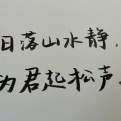 日落山水静，
为君起松声。